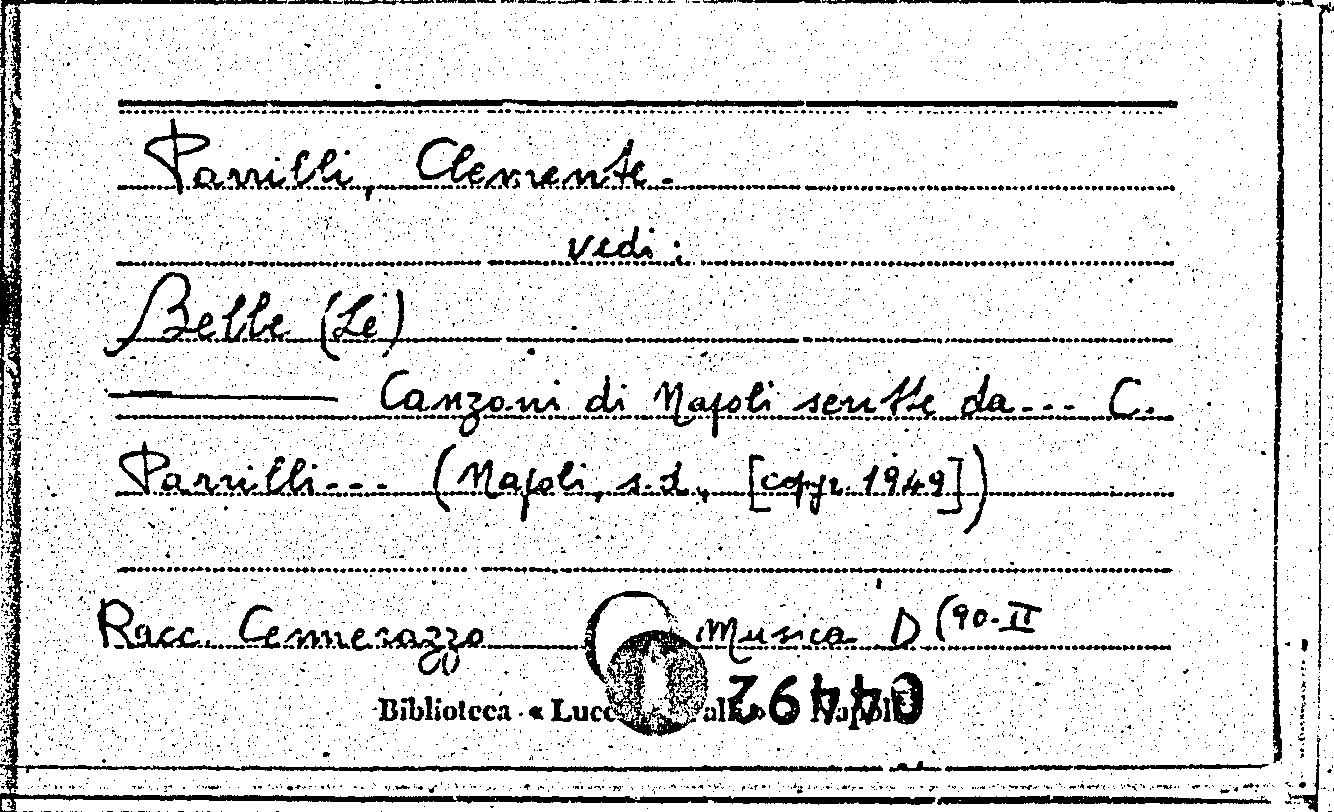 Parrilli, Clemente.
vedi:
Belle (Le)
Canzoni di Napoli scritte da--- C.
Parrilli--- (Napoli, s.d., [copyr. 1949])
Racc. Musica D (90-II
Biblioteca « Napoli
04492